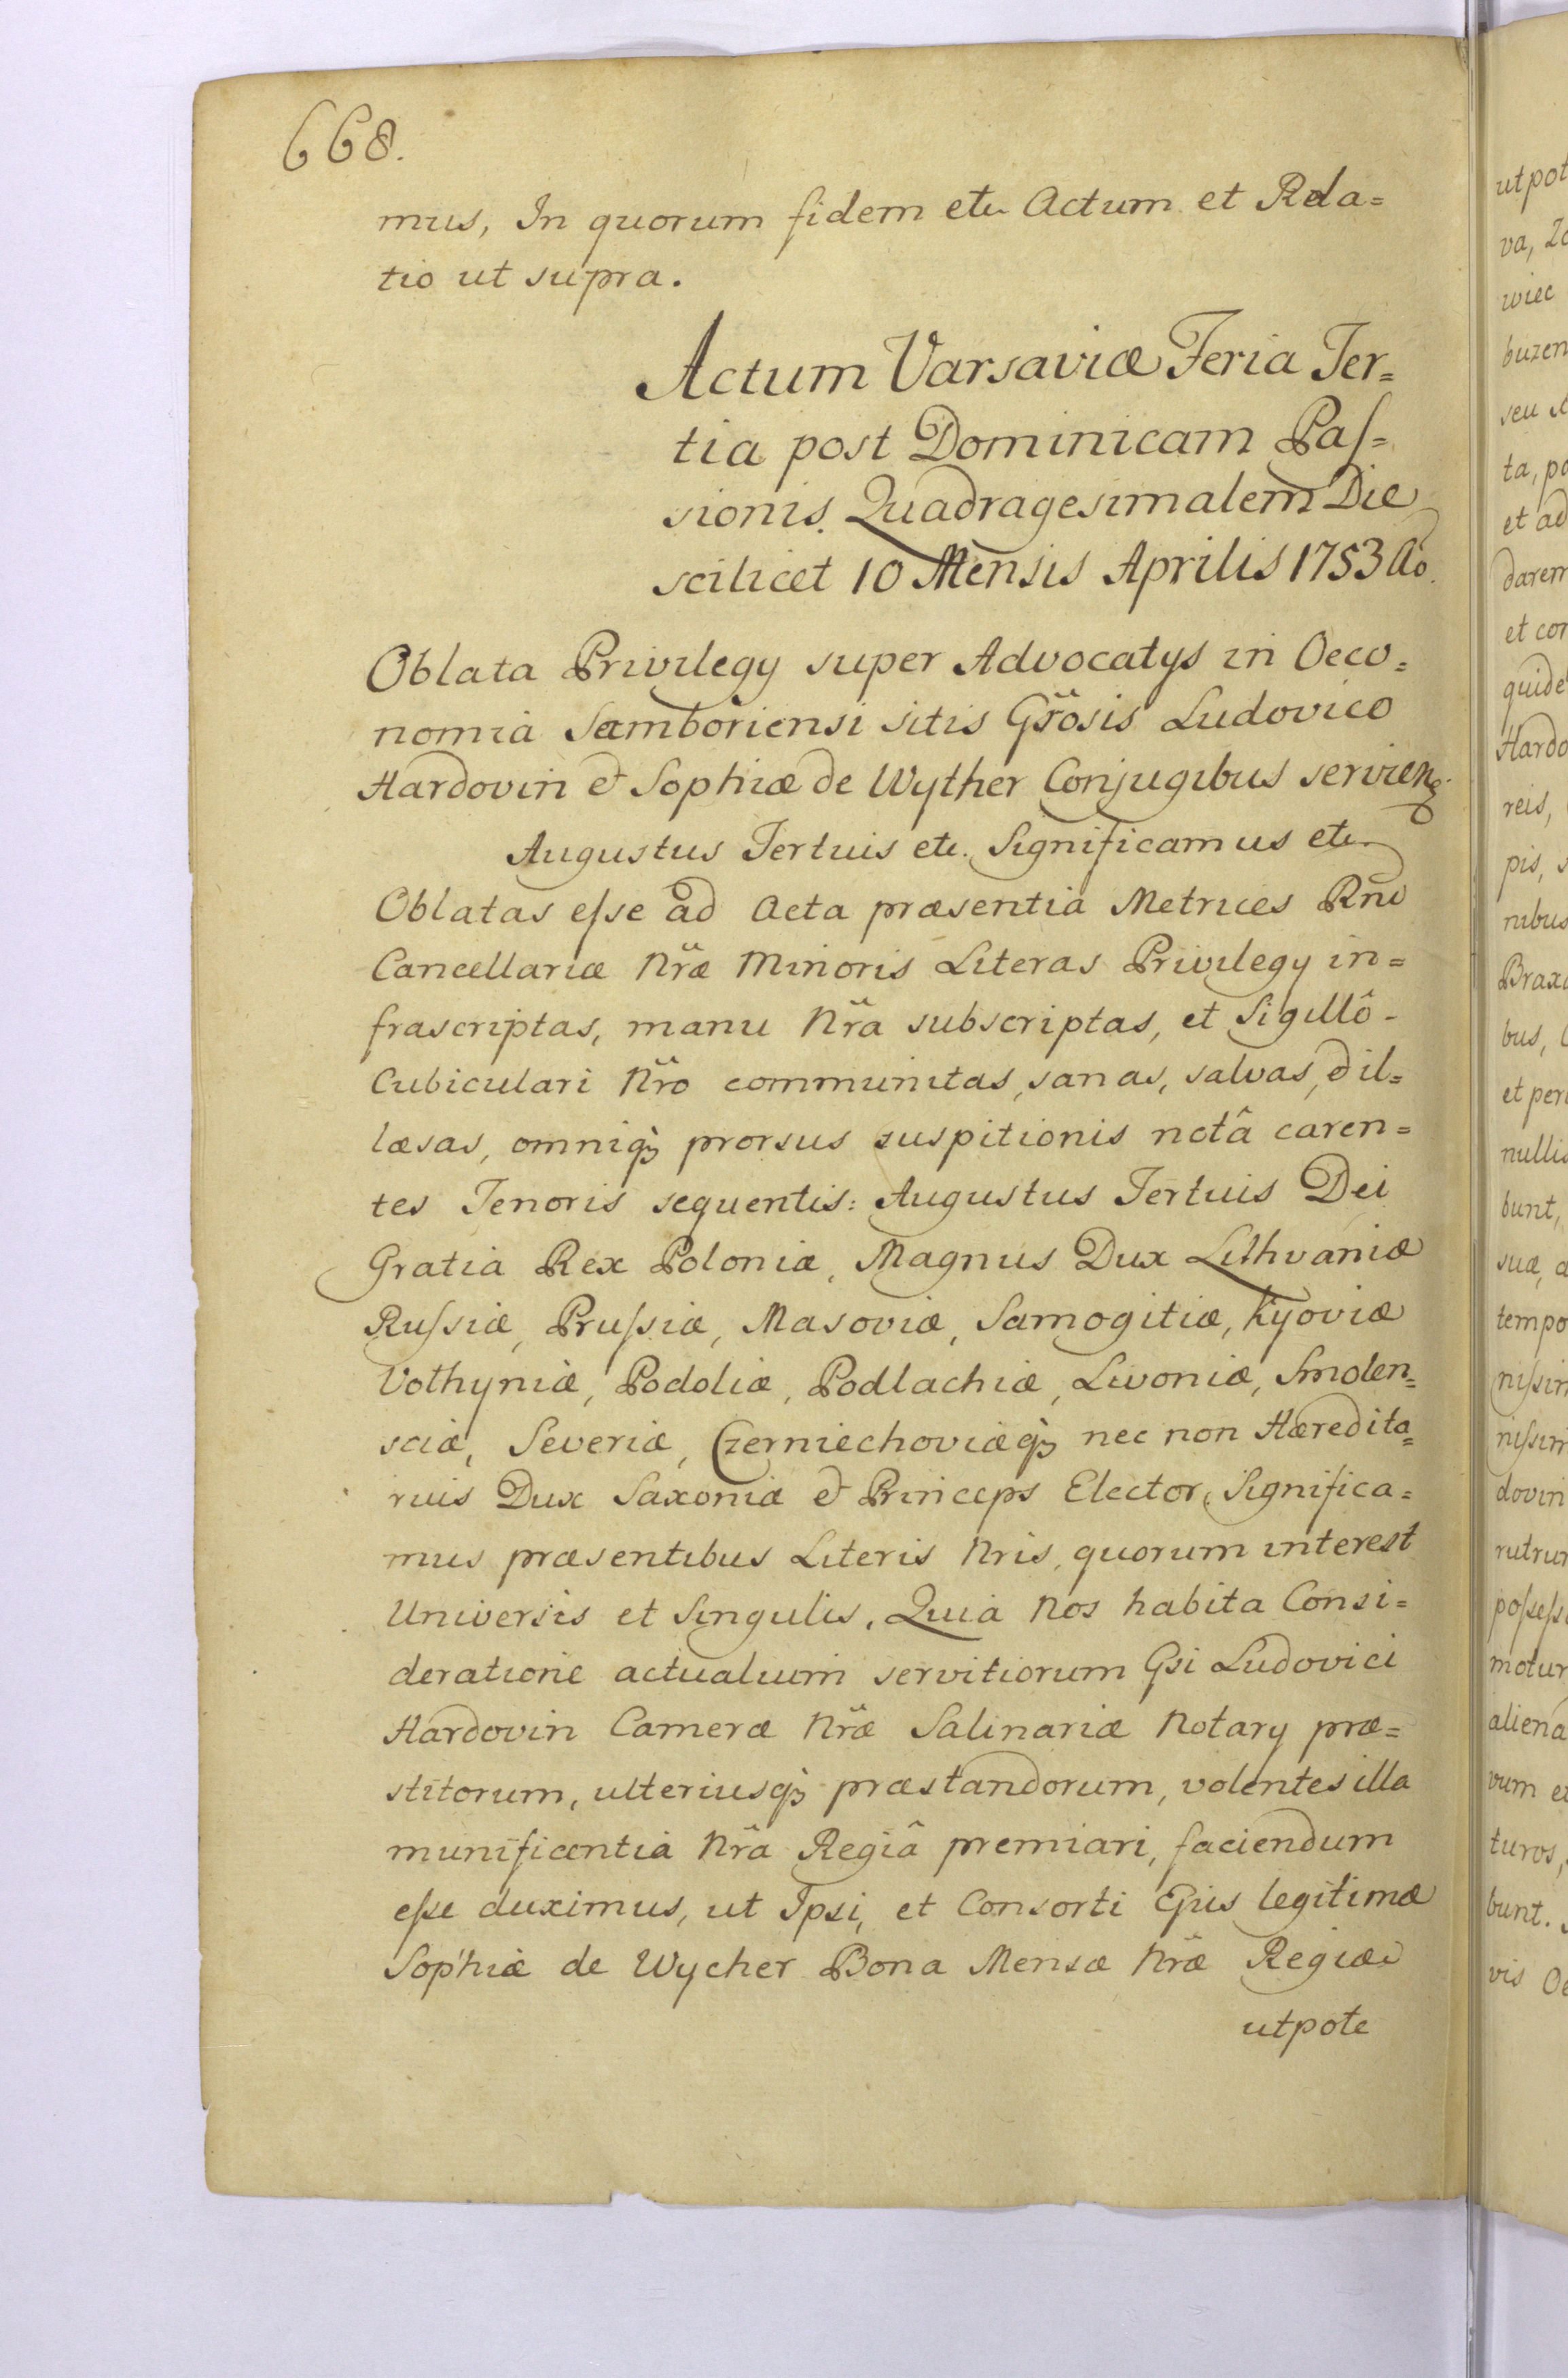 668.
mus, In quorum fidem etc Actum et Rela=
tio ut supra.
Actum Varsaviæ Feria Ter=
tia post Dominicam Paſ=
sionis Quadragesimalem Die
scilicet 10 Mensis Aprilis 1753 Ao.
Oblata Privilegy super Advocatys in Oeco=
nomia Samboriensi sitis Gr̃osis Ludovico
Hardovin & Sophiæ de Wyther Conjugibus servien
Augustus Tertius etc. Significamus etc
Oblatas eſse ad Acta præsentia Metrices Rni
Cancellariæ Nr̃æ Minoris Literas Privilegy in=
frascriptas, manu Nr̃a subscriptas, et Sigillô
Cubiculari Nr̃o communitas, sanas, salvas, & il=
læsas, omniq₃ prorsus suspitionis notâ caren=
tes Tenoris sequentis: Augustus Tertius Dei
Gratia Rex Poloniæ, Magnus Dux Lithvaniæ
Ruſsiæ, Pruſsiæ, Masoviæ, Samogitiæ, Kyoviæ
Volhyniæ, Podoliæ, Podlachiæ, Livoniæ, Smolen=
sciæ, Severiæ, Czerniechoviæq₃ nec non Hæredita=
rius Dux Saxoniæ & Princeps Elector, Significa=
mus præsentibus Literis Nris, quorum interest
Universis et Singulis. Quia Nos habita Consi=
deratione actualium servitiorum Gsi Ludovici
Hardovin Cameræ Nr̃æ Salinariæ Notary præ=
stitorum, ulteriusq₃ præstandorum, volentes illa
munificentia Nr̃a Regiâ premiari, faciendum
eſse duximus, ut Ipsi, et Consorti Ejus legitimæ
Sophiæ de Wycher Bona Mensæ Nr̃æ Regiæ
utpote
utpot
va,
wiec
buzen
seu
ta, po
et ad
darem
et con
quide
Hardo
reis,
pis,
nibus
Brax
bus,
et per
nullis
bunt,
suæ,
tempo
niſsim
niſsim
dovin
rutrum
poſseſs
motur
aliena
vum
turos,
bunt.
vis Oe